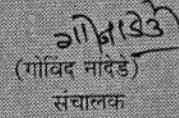 (गोविंद नांदेडे)
संचालक